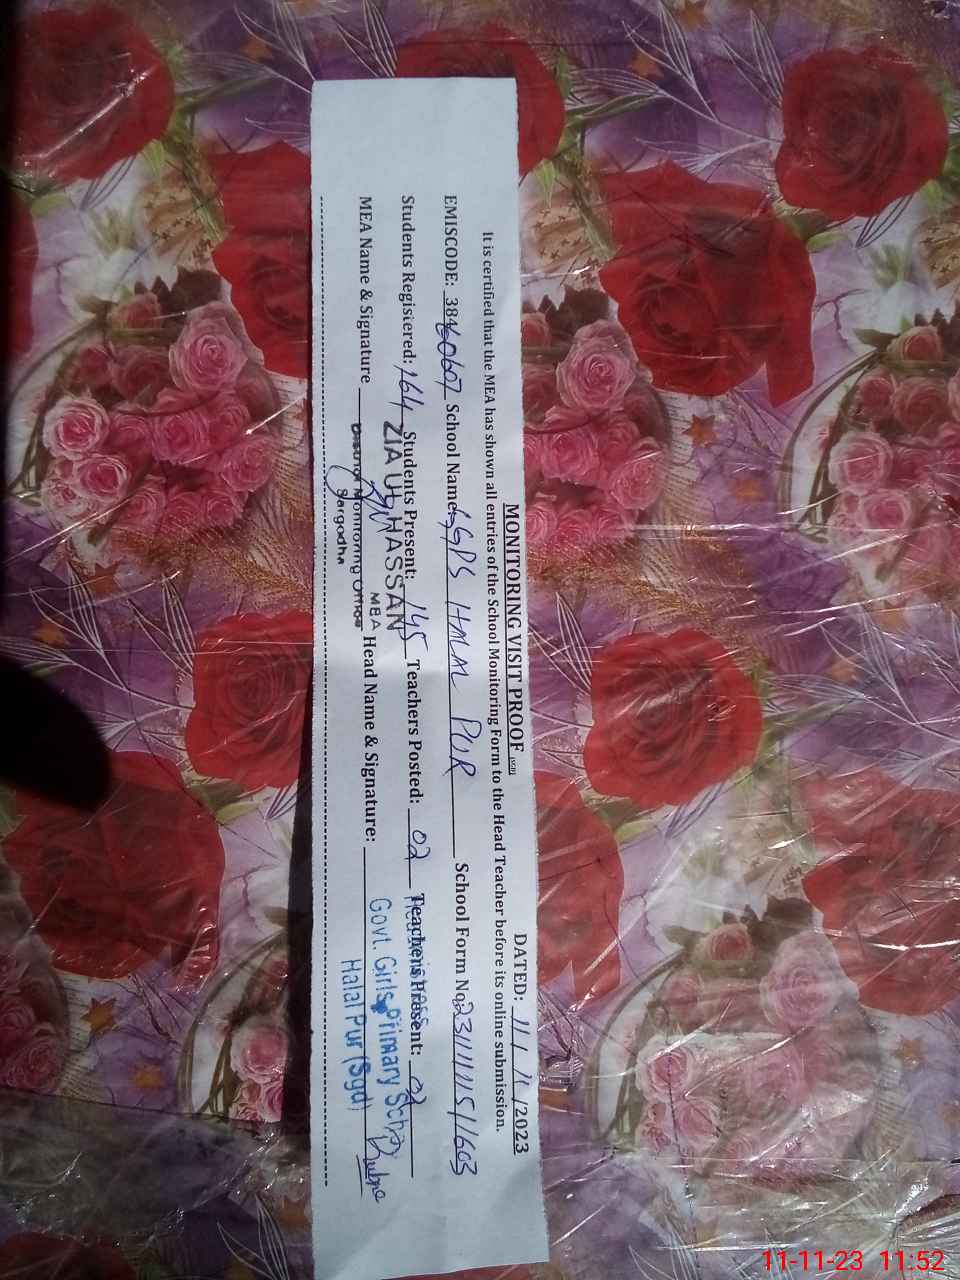 MONITORING VISIT PROOF (SGD)
DATED: 11 / 11 /2023
It is certified that the MEA has shown all entries of the School Monitoring Form to the Head Teacher before its online submission.
EMISCODE: 38460607 School Name: GGPS HALAL PUR School Form No: 
Students Registered: 164 Students Present: 145 Teachers Posted: 02 Teachers Present: 02
MEA Name & Signature Head Name & Signature:
ZIA UL HASSAN
MEA
District Monitoring Office
Sargodha
Govt. Girls Primary School
Halal Pur (Sgd)
11-11-23 11:52